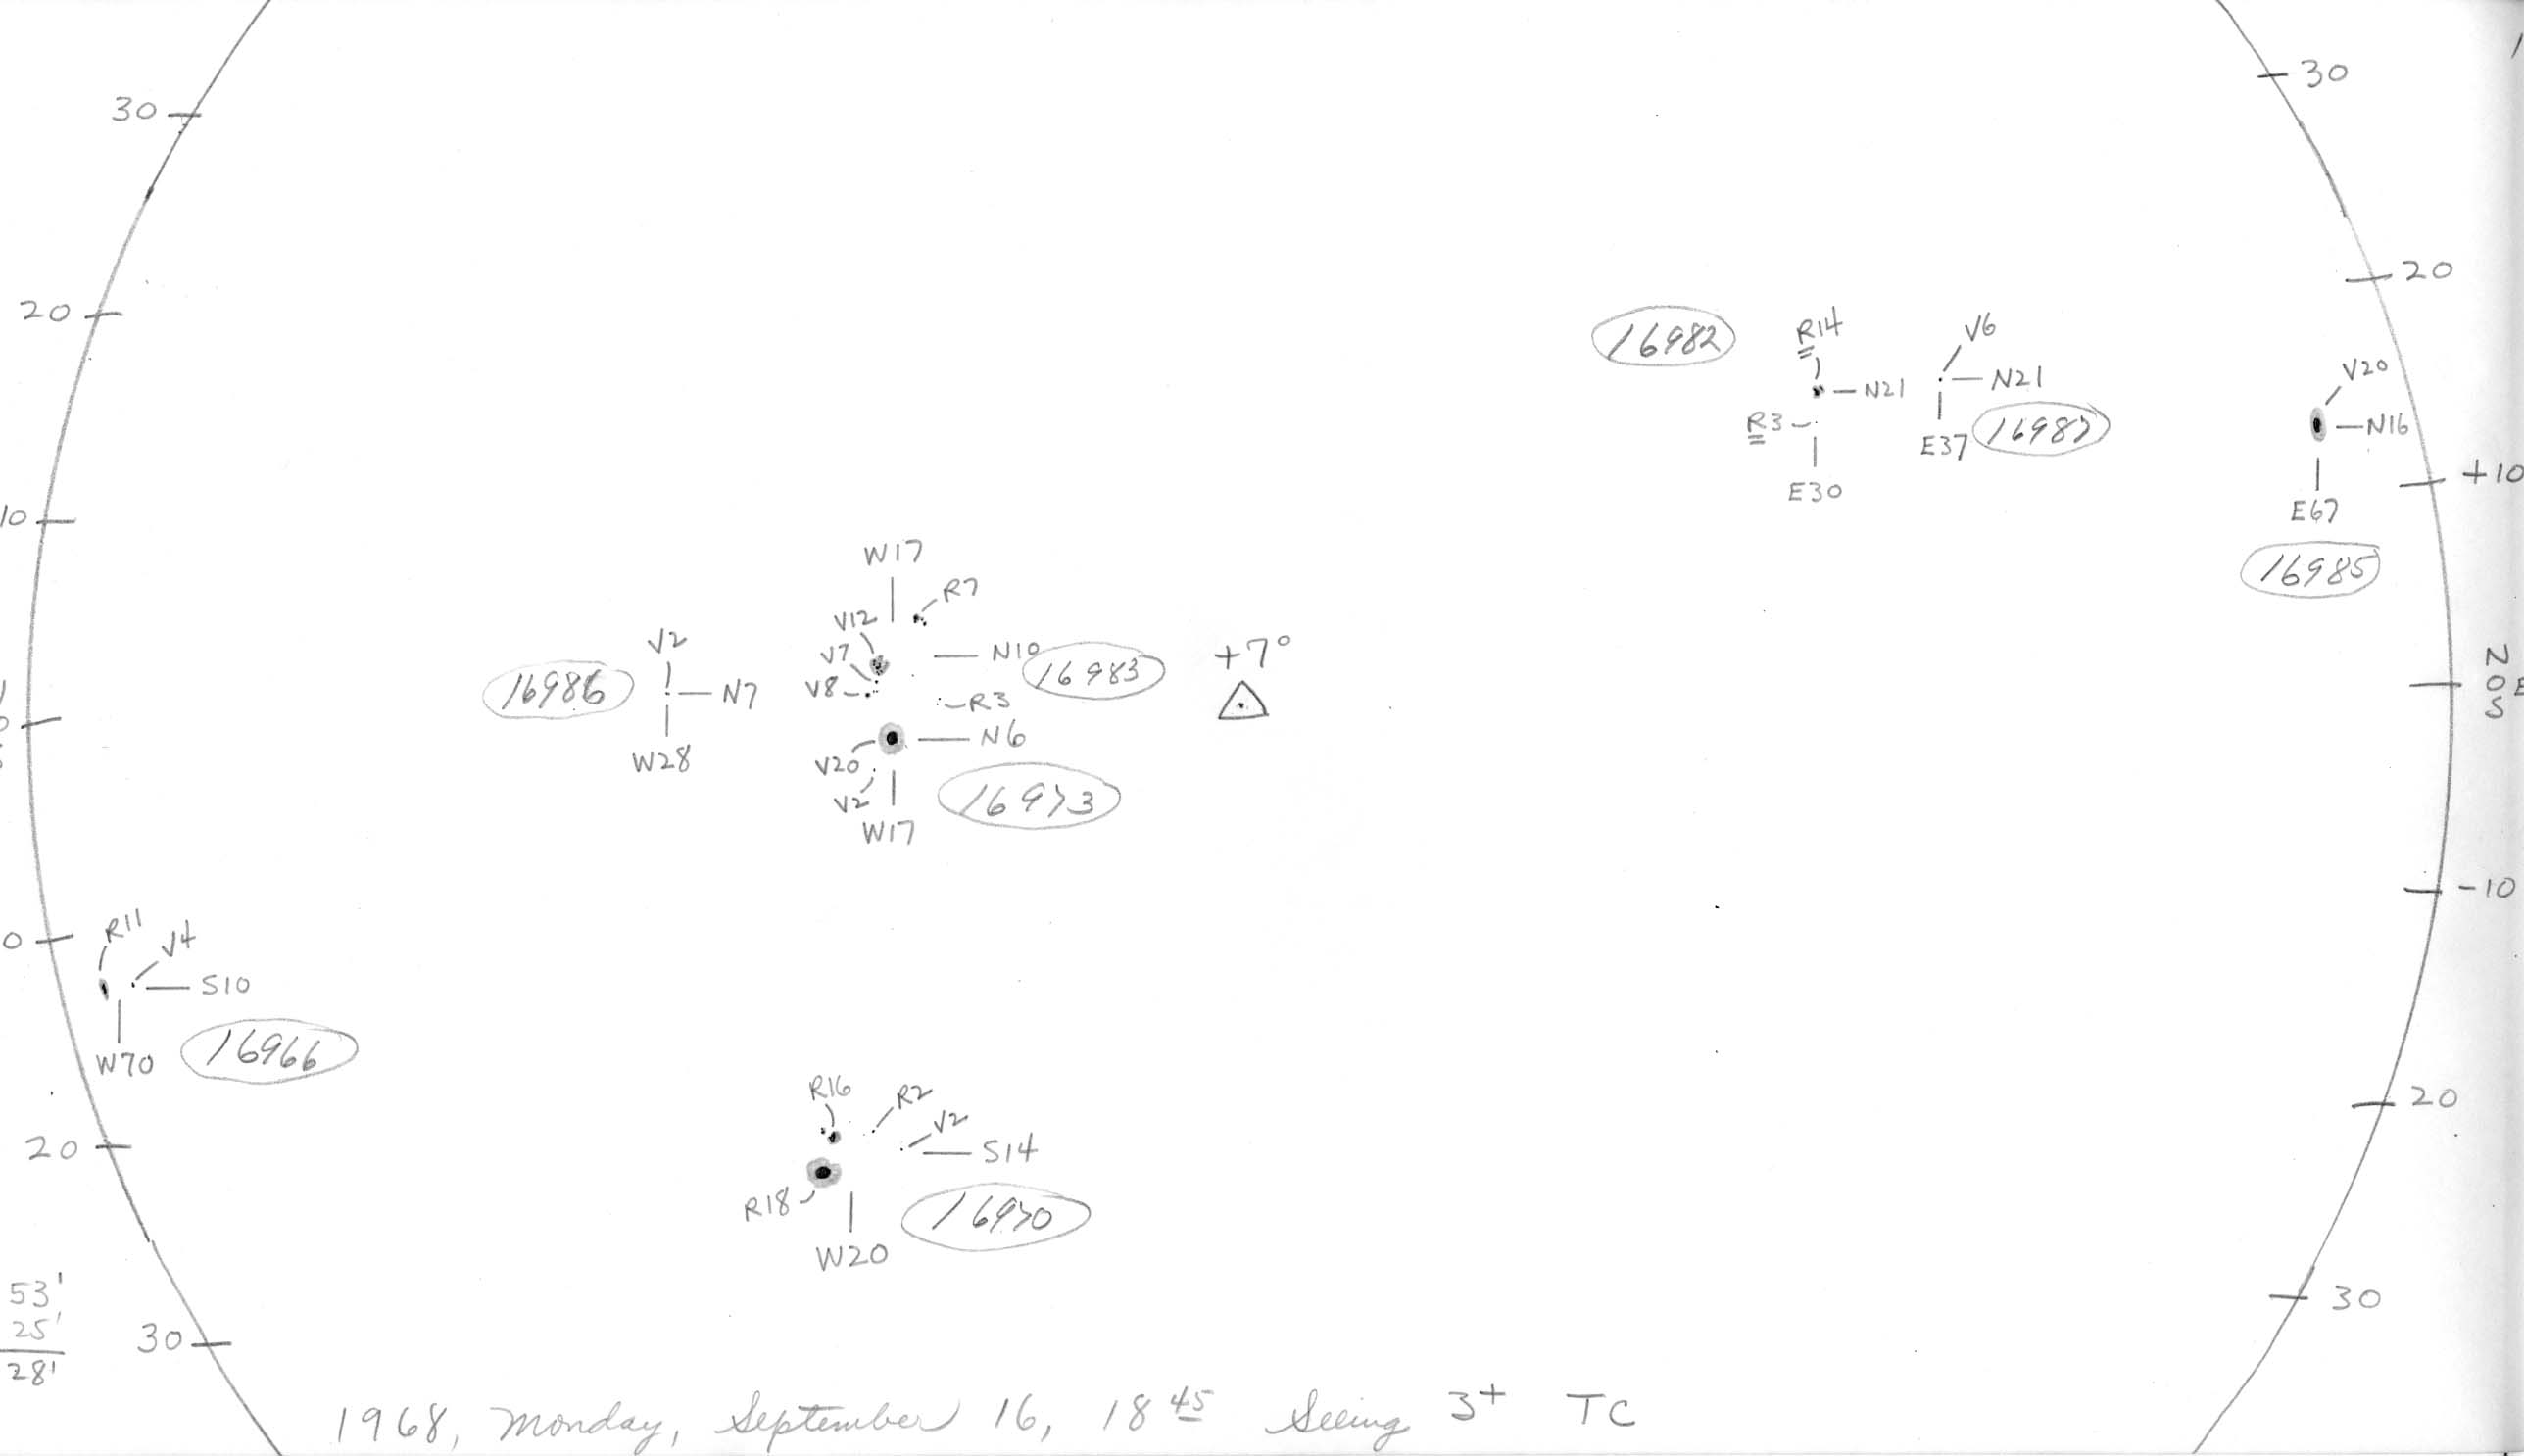 30
30
20
20
16982
R14
V6
N21
N21
R3
E37
16987
E30
V20
N16
E67
16985
10
+10
W17
R7
V12
V7
V8
N10
16983
R3
V2
16986
N7
W28
+7°
N
0 E
S
V20
N6
V2
W17
16973
-10
0
R11
V4
S10
W70
16966
R16
R2
V2
S14
R18
16970
W20
20
20
53'
25'
28'
30
30
1968, Monday, September 16, 18 45 Seeing 3+ TC